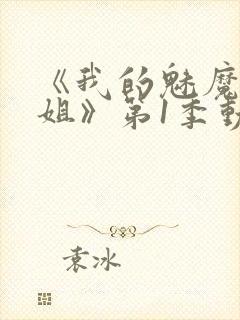 《我的魅魔
姐》第1季動
袁冰